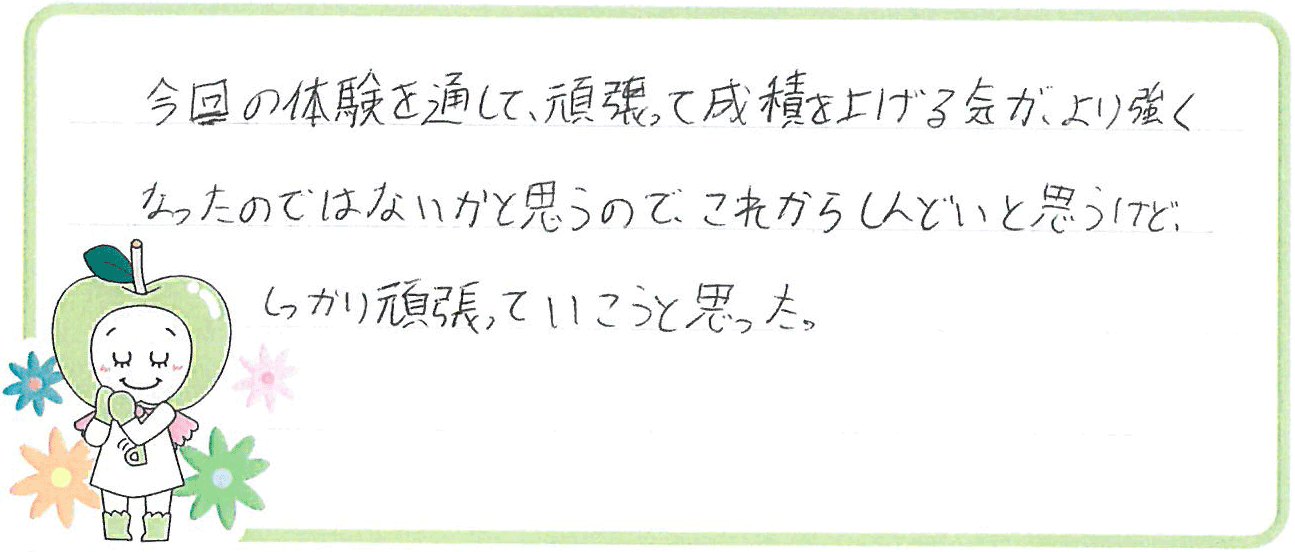 今回の体験を通して、頑張って成積を上げる気が、より強く
なったのではないかと思うので、これからしんどいと思うけど、
しっかり頑張っていこうと思った。